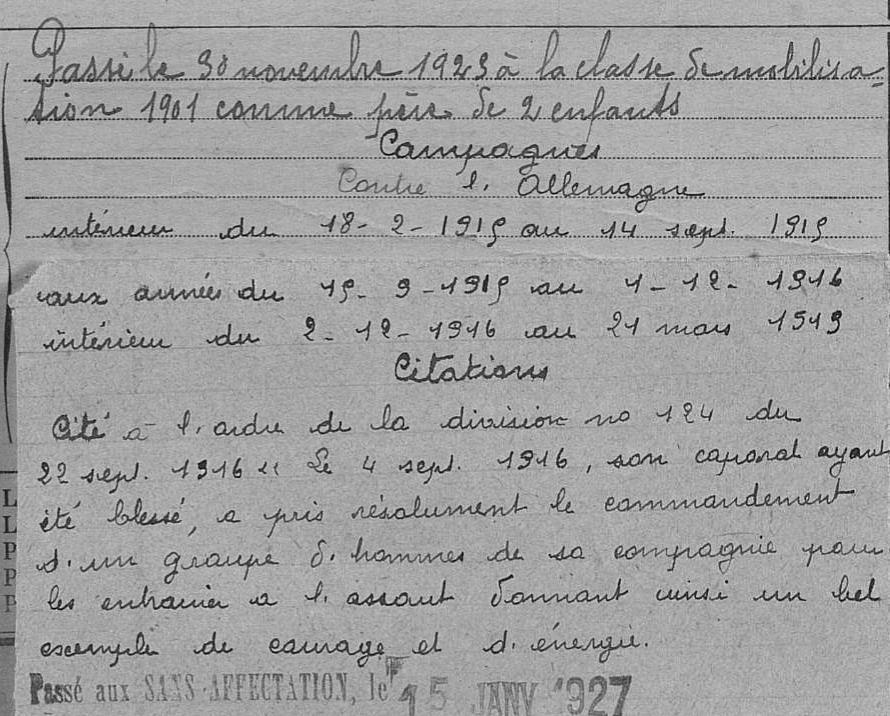 Passé le 30 novembre 1923 à la classe de mobilisa-
tion 1901 comme père de 2 enfants
Campagnes
Contre l'Allemagne
intérieur du 18-2-1915 au 14 sept. 1915
aux armées du 15-9-1915 au 1-12-1916
intérieur du 2-12-1916 au 21 mars 1919
Citations
Cité à l'ordre de la division no 124 du
22 sept. 1916 " Le 4 sept. 1916, son caporal ayant
été blessé, a pris résolument le commandement
d'un groupe d'hommes de sa compagnie pour
les entrainer a l'assaut donnant ainsi un bel
exemple de courage et d'énergie.
Passé aux SANS-AFFECTATION, le 15 JANV 1927
L
L
P
P
P